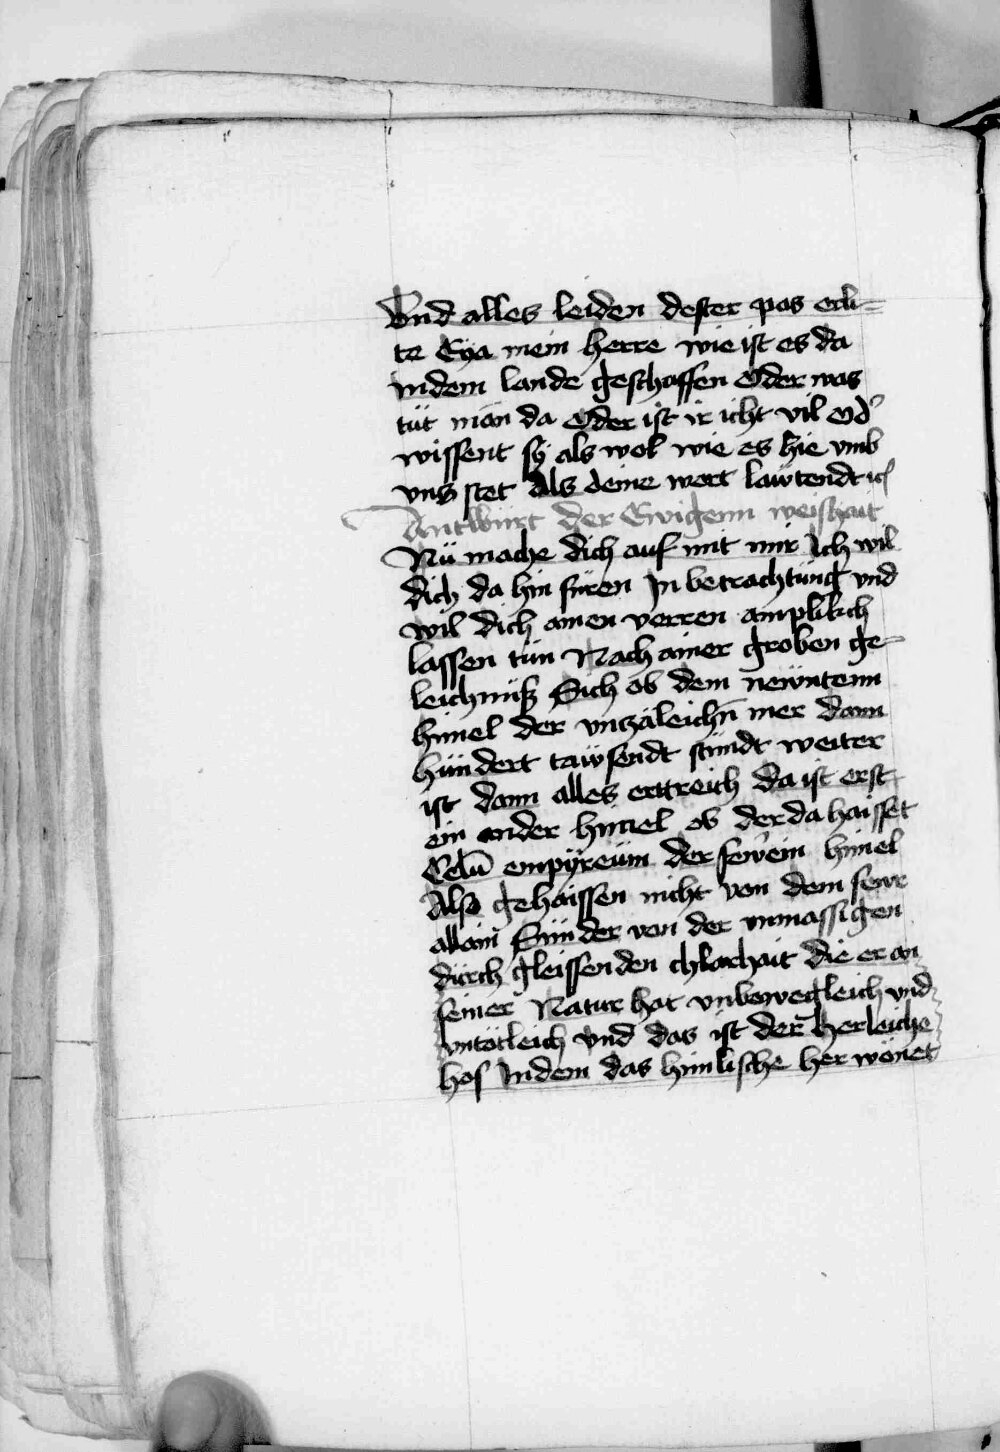 Vnd alles leiden dester pas erli=
te Eya mein herre wie ist es da
indem lande geschaffen Oder was
tüt man da Oder ist ir icht vil Od᾽
wissent sy als wol wie es hie vmb
vns stet Als deine wort lawtendt ꝛc
Antwürt der Ewigenn weishait
Nü mache dich auf mit mir Ich wil
dich da hin füren In betrachtüng vnd
wil dich ainen verren anplikch
lassen tün Nach ainer groben ge-
leichnüß Sich ob dem newntenn
himel der vnzäleich̄n mer dann
hündert tawsendt stündt weiter
ist dann alles erttreich Da ist erst
ein ander himel ob der da haisset
Celū empÿreüm der fewrein himel
Also gehaissen nicht von dem fewr
allain Sünder von der vnmassigen
dürch gleissenden chlarhait die er an
seiner Natur hat vnbewegleich vnd
vntötleich vnd das ist der herleiche
hof Indem das himlische her wonet